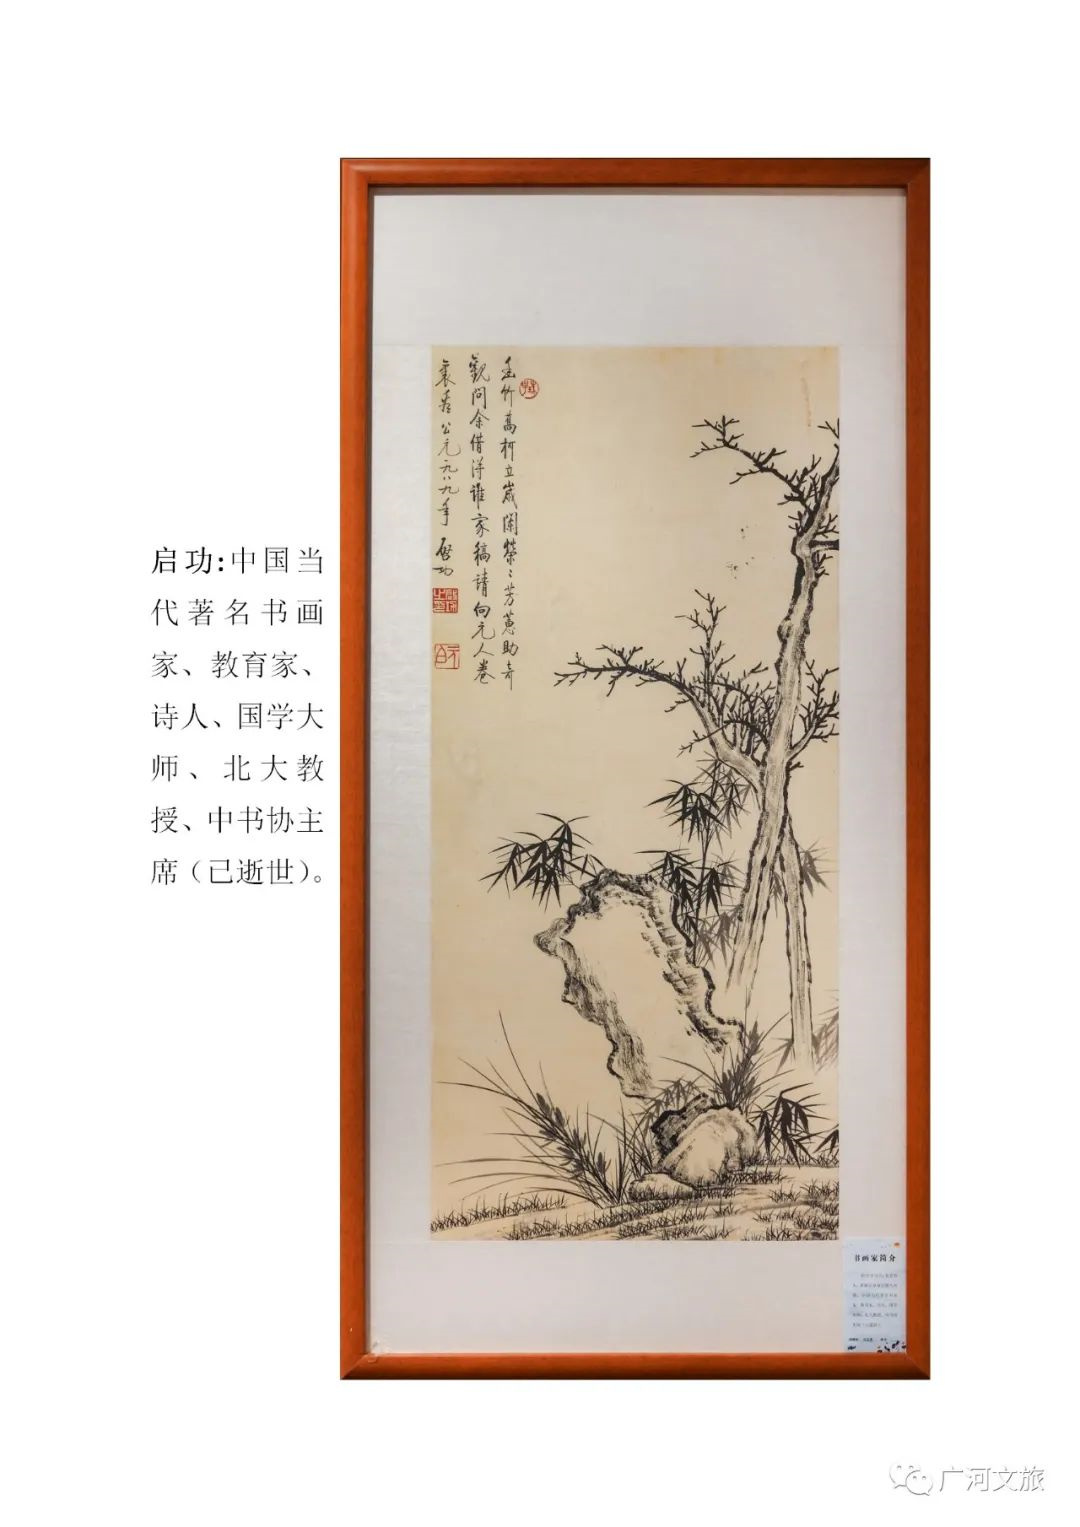 启功:中国当
代著名书画
家、教育家、
诗人、国学大
师、北大教
授、中书协主
席（已逝世）。
竹高柯立岁阑荣〻芳蕙助奇
觀问余借得谁家稿請向元人卷
裏看公元一九八九年 启功
书画家简介
广河文旅